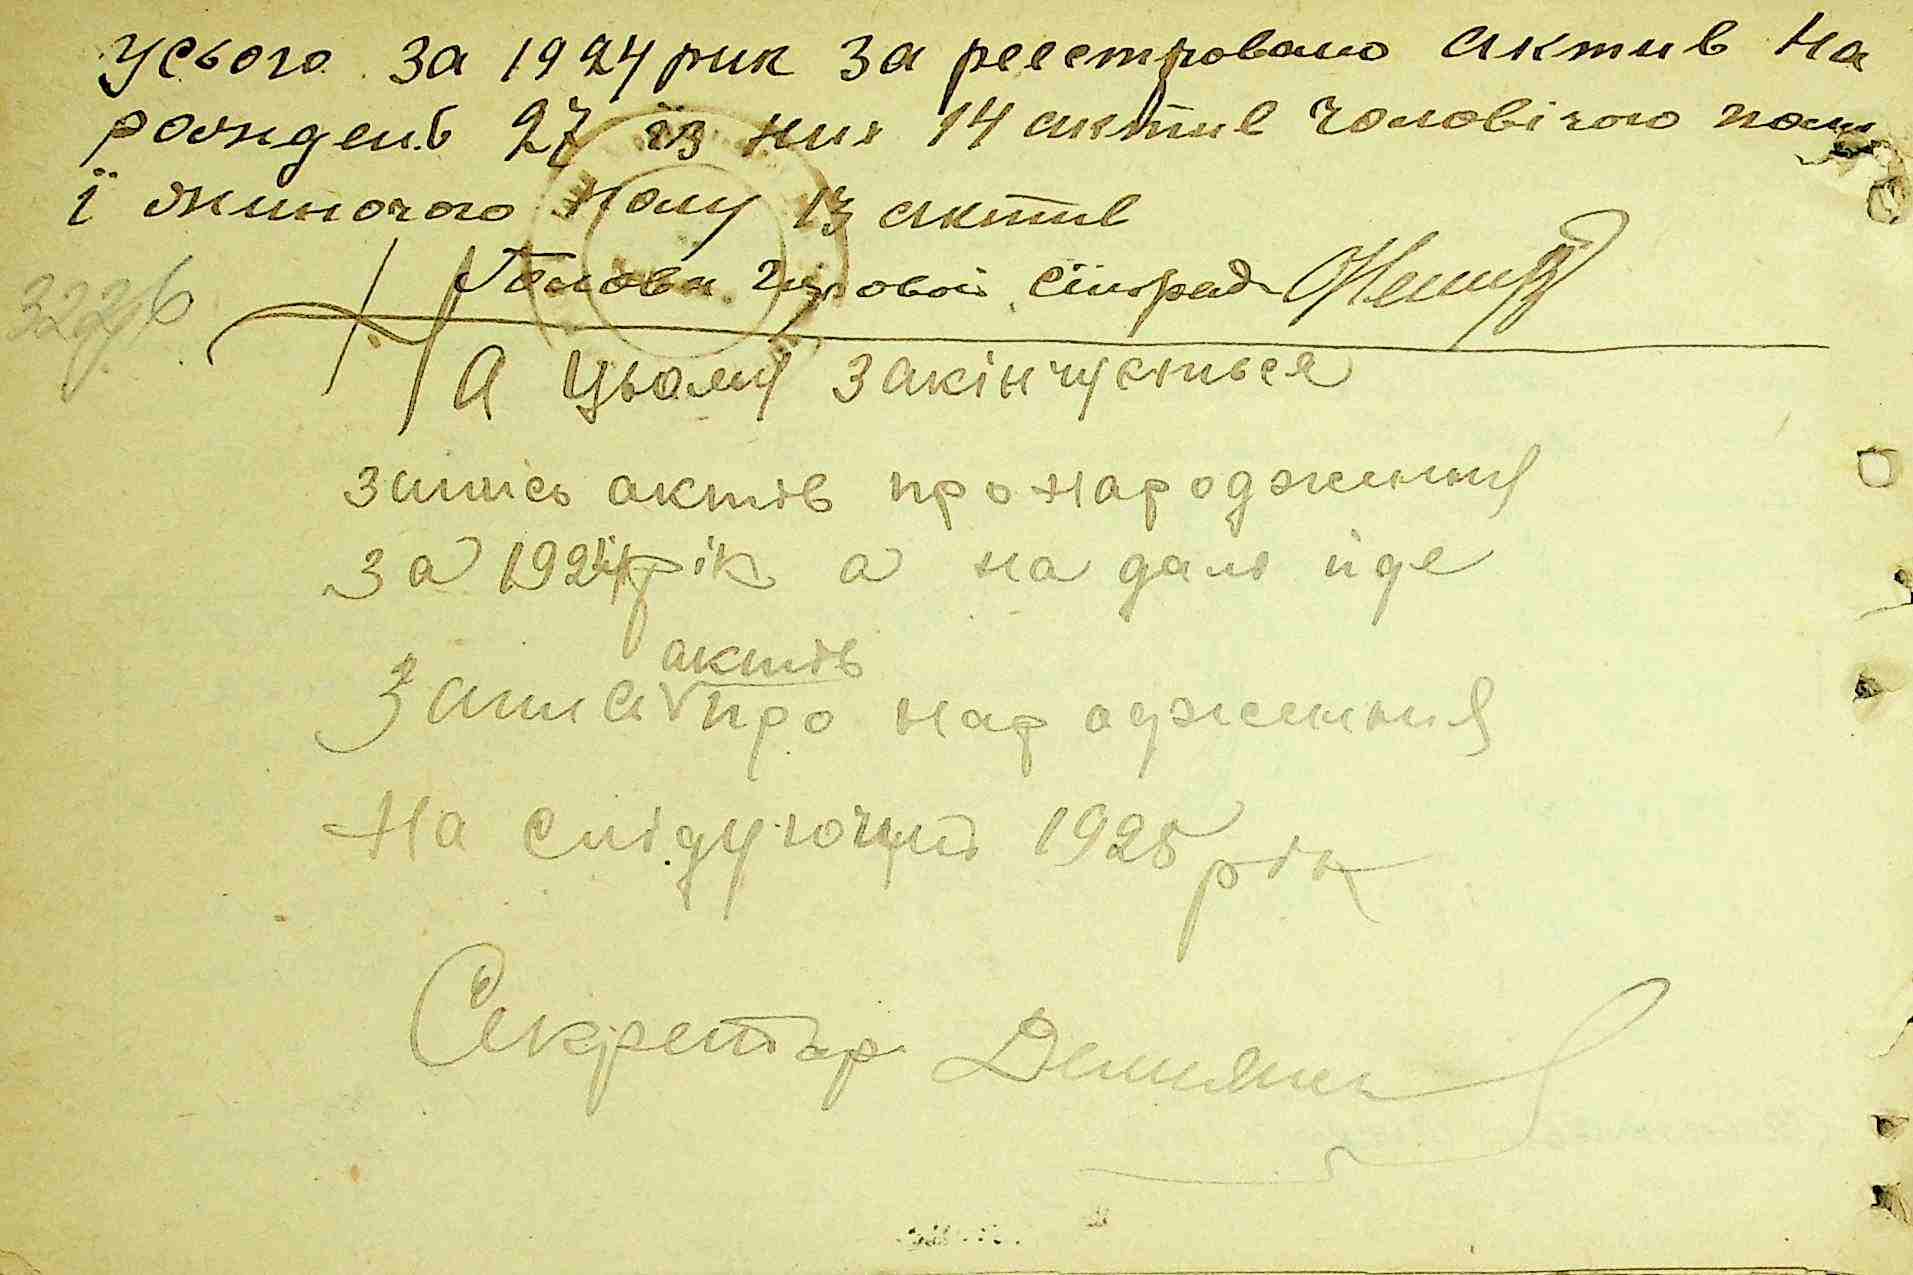 усього за 1924 рик за реєстровано актив на
рождень 27 їз них 14 актив чоловічого полу
ї жиночого полу 13 актив
Голова сїльрад
На цьому закінчується
запись актів про народження
за 1924 рік а на далі йде
актів
Записи про народження
На слідуючий 1925 рік
Секретар